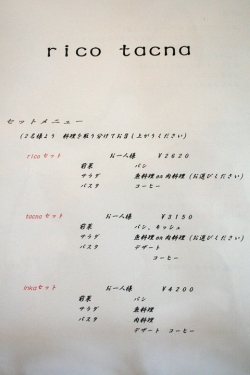 rico tacna
セットメニュー
(2名様より 料理を取り分けてお召し上がりください)
ricoセット お一人様 ¥2620
前菜 パン
サラダ 魚料理or肉料理 (お選びください)
パスタ コーヒー
tacnaセット お一人様 ¥3150
前菜 パン、キッシュ
サラダ 魚料理or肉料理 (お選びください)
パスタ デザート
コーヒー
incaセット お一人様 ¥4200
前菜 パン
サラダ 魚料理
パスタ 肉料理
デザート コーヒー